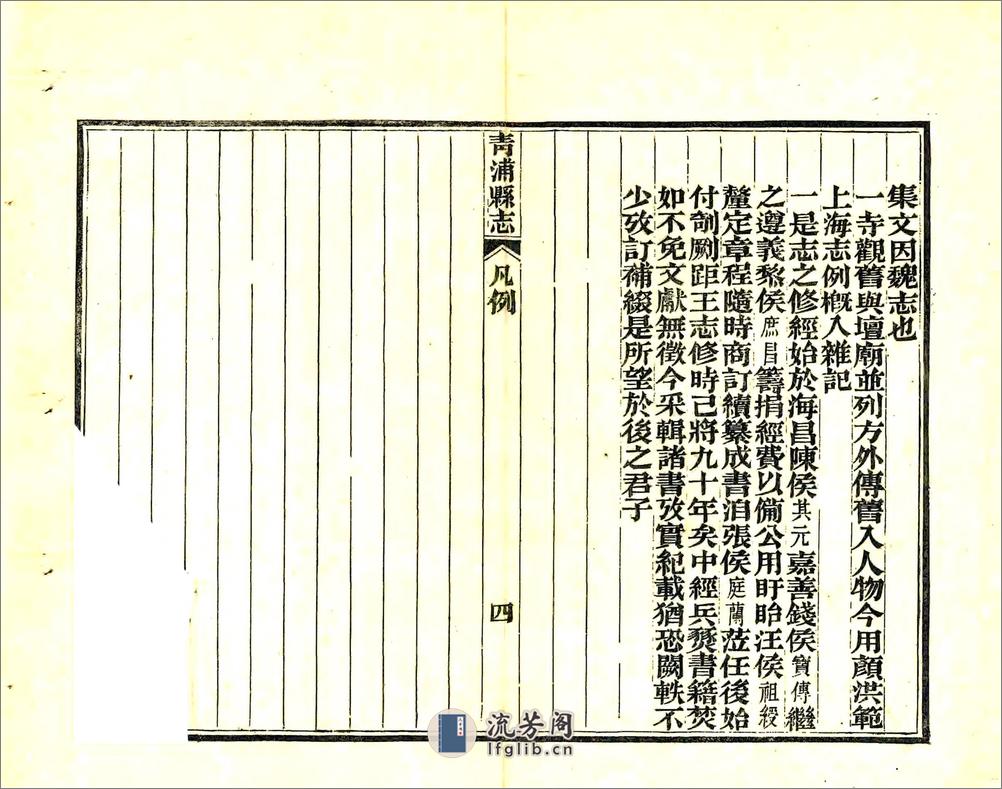 集文因魏志也
一寺觀舊與壇廟並列方外傳舊入人物今用顔洪範
上海志例槪入雜記
一是志之修經始於海昌陳侯其元嘉善錢侯寶傳繼
之遵義黎侯庶昌籌捐經費以備公用盱眙汪侯祖綬
釐定章程隨時商訂續纂成書洎張侯庭蘭蒞任後始
付剞劂距王志修時已將九十年矣中經兵燹書籍焚
如不免文獻無徵今采輯諸書攷實紀載猶恐闕軼不
少攷訂補綴是所望於後之君子
靑浦縣志
凡例
四
流芳阁
lfglib.cn